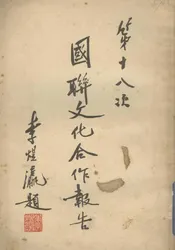 第十八次
國聯文化合作報告
李煜瀛題